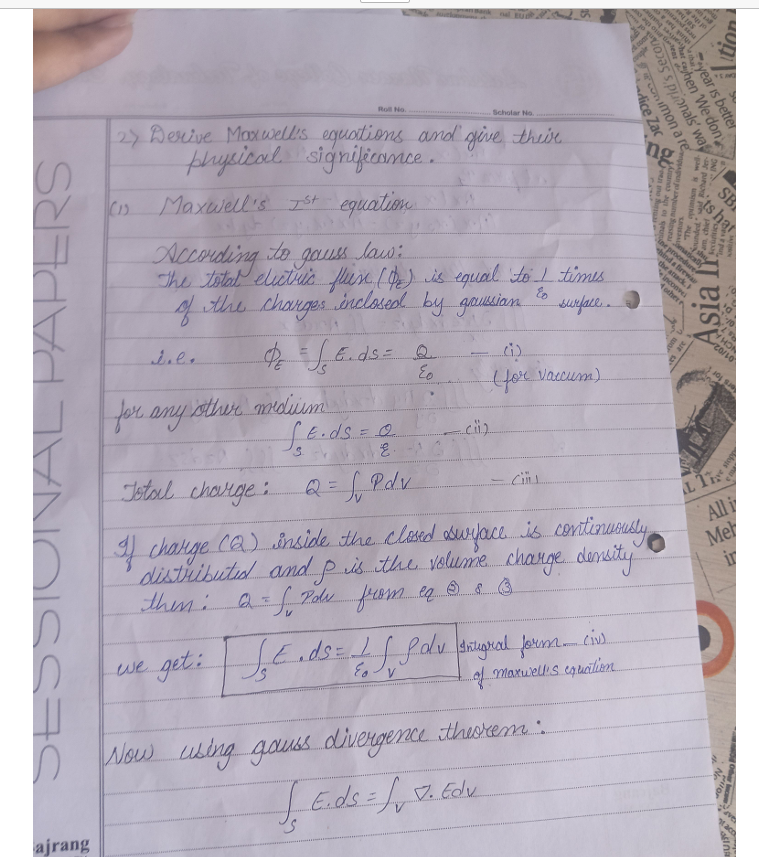 Roll No. Scholar No.
2) Derive Maxwell's equations and give their
physical significance.
(1) Maxwell's Ist equation
According to gauss law:
The total electric flux (ϕE) is equal to 1/ε0 times
of the charges inclosed by gaussian surface.
i.e. ϕE = ∫S E.ds = Q/ε0 — (i)
(for vaccum)
for any other medium
∫S E.ds = Q/ε — (ii)
Total charge: Q = ∫V ρdv — (iii)
If charge (Q) inside the closed surface is continuously
distributed and ρ is the volume charge density
then: Q = ∫V ρdv from eq ② & ③
we get: ∫S E.ds = 1/ε0 ∫V ρdv Integral form — (iv)
of maxwell's equation
Now using gauss divergence theorem:
∫S E.ds = ∫V ∇.Edv
SESSIONAL PAPERS
ajrang
Asia
All i
Meh
in
year is better